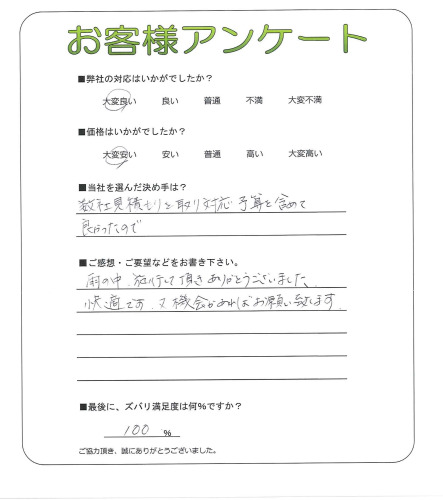 お客様アンケート
■弊社の対応はいかがでしたか?
大変良い 良い 普通 不満 大変不満
■価格はいかがでしたか?
大変安い 安い 普通 高い 大変高い
■当社を選んだ決め手は?
数社見積もりを取り対応 予算を含めて
良かったので
■ご感想・ご要望などをお書き下さい。
雨の中、施行して頂きありがとうございました、
快適です。又機会があればお願い致します。
■最後に、ズバリ満足度は何%ですか?
100 %
ご協力頂き、誠にありがとうございました。